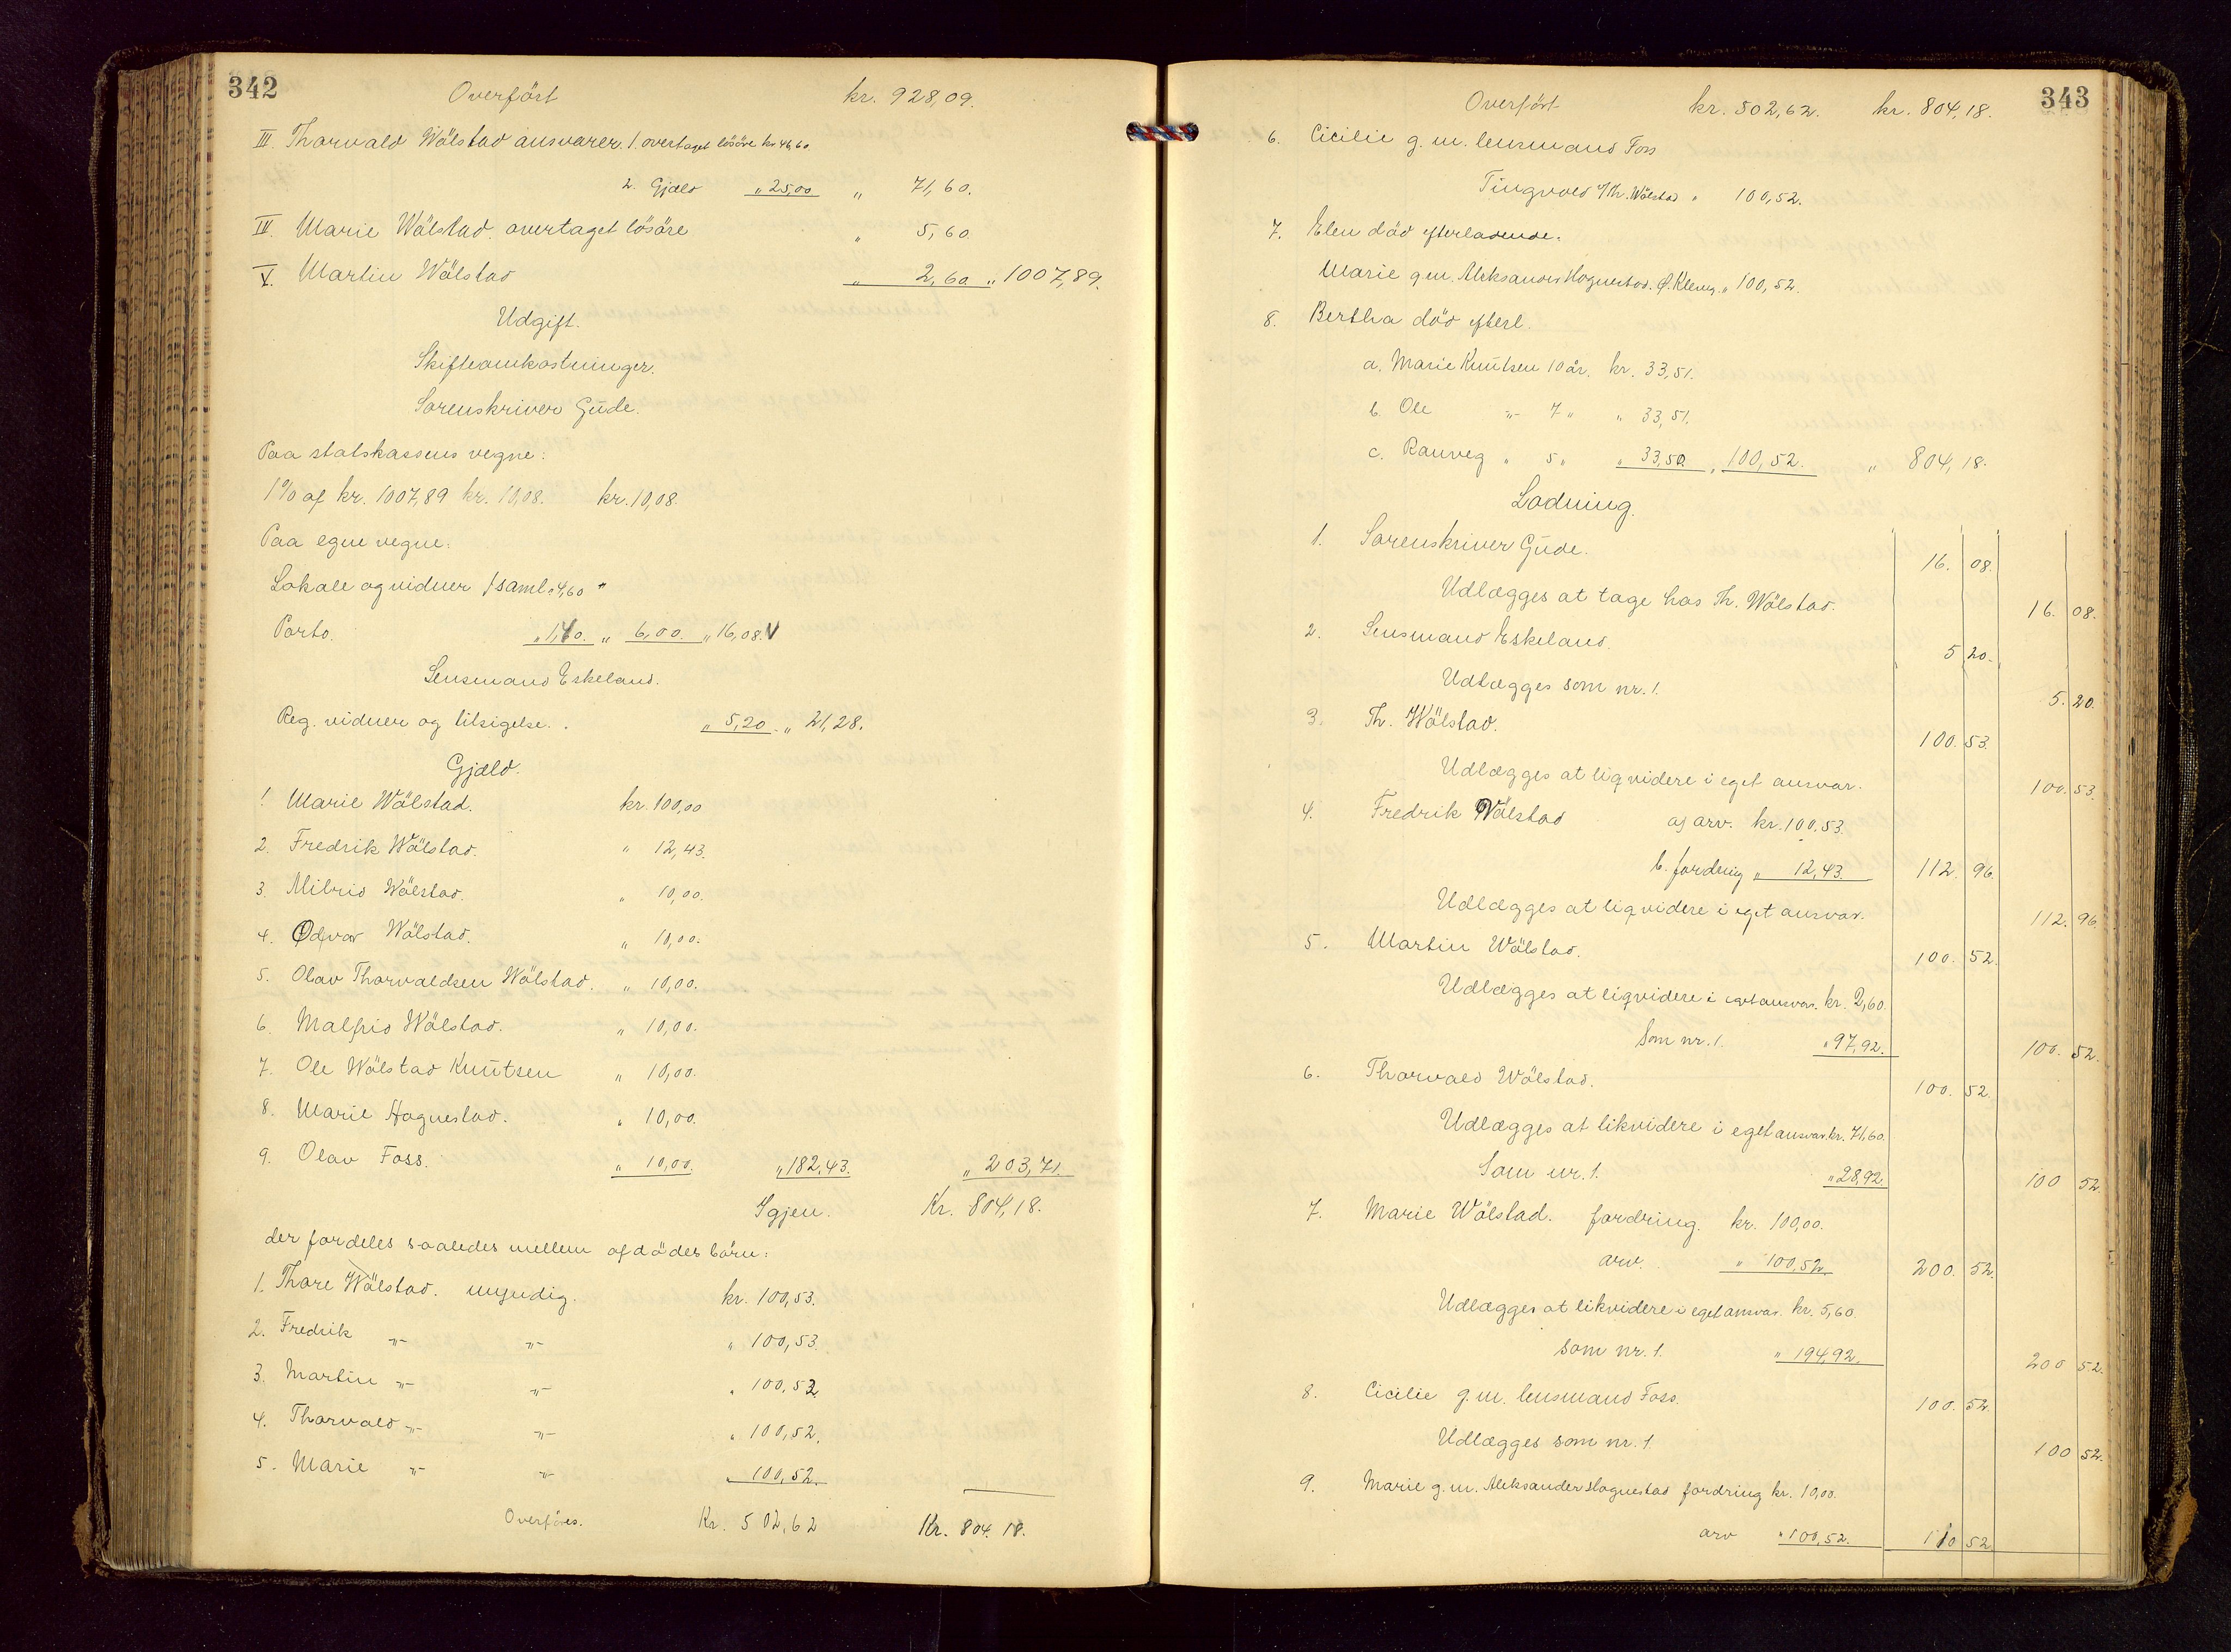 342
Overfört kr. 928,09.
III. Thorvald Wölstad ansvarer. 1. overtaget lösöre kr 46,60
2. Gjæld " 25,00 " 71,60.
IV. Marie Wölstad. overtaget lösöre " 5,60.
V. Martin Wölstad " 2,60 " 1007,89.
Udgift.
Skifteomkostninger.
Sorenskriver Gude.
Paa statskassens vegne:
1% af kr. 1007,89 kr. 10,08. kr. 10,08
Paa egne vegne:
Lokale og vidner / saml. 4,60 "
Porto. " 1,40. " 6,00. " 16,08.
Lensmand Eskeland.
Reg. vidner og tilsigelse. . " 5,20. " 21,28.
Gjæld.
1 Marie Wölstad. kr. 100,00
2. Fredrik Wölstad. " 12,43.
3. Milrid Wölstad. " 10,00.
4. Odvar Wölstad. " 10,00.
5. Olav Thorvaldsen Wölstad. " 10,00.
6. Malfrid Wölstad. " 10,00.
7. Ole Wölstad Knutsen " 10,00.
8. Marie Hognestad. " 10,00.
9. Olav Foss. " 10,00. " 182,43. " 203,71.
Igjen. Kr. 804,18.
der fordeles saaledes mellem afdödes börn:
1. Thore Wölstad. myndig. kr. 100,53.
2. Fredrik -"- -"- " 100,53.
3. Martin -"- -"- " 100,52
4. Thorvald -"- -"- " 100,52.
5. Marie -"- -"- " 100,52.
Overföres. Kr. 502,62 Kr. 804.18.
343
Overfört kr. 502,62. kr. 804,18.
6. Cicilie g. m. lensmand Foss
Tingvold v/Th. Wölstad " 100,52.
7. Elen död efterladende:
Marie gm. Aleksander Hognestad. Ø. Klevg. " 100,52.
8. Bertha död efterl.
a. Marie Knutsen 10 år. kr. 33,51.
b. Ole -"- 7 " " 33,51.
c. Ranveg " 5 " " 33,50. " 100,52. " 804,18.
Lodning.
1. Sorenskriver Gude. 16. 08.
Udlægges at tage hos Th. Wölstad. 16. 08.
2. Lensmand Eskeland. 5 20.
Udlægges som nr. 1. 5. 20.
3. Th. Wölstad. 100. 53.
Udlægges at liqvidere i eget ansvar. 100. 53.
4. Fredrik Wölstad a) arv. kr. 100.53.
b. fordring " 12,43. 112. 96.
Udlægges at liqvidere i eget ansvar. 112. 96.
5. Martin Wölstad. 100. 52.
Udlægges at liqvidere i eget ansvar. kr. 2,60.
Som nr. 1. " 97,92. 100. 52.
6. Thorvald Wölstad. 100. 52.
Udlægges at likvidere i eget ansvar. kr. 71,60.
Som nr. 1. " 28,92. 100 52.
7. Marie Wölstad. fordring. kr. 100,00.
arv. " 100,52. 200. 52.
Udlægges at likvidere i eget ansvar. kr. 5,60.
som nr. 1. " 194,92. 200 52.
8. Cicilie g. m. lensmand Foss. 100. 52.
Udlægges som nr. 1. 100 52.
9. Marie g. m. Aleksander Hognestad fordring kr. 10,00.
arv " 100,52. 110 52.